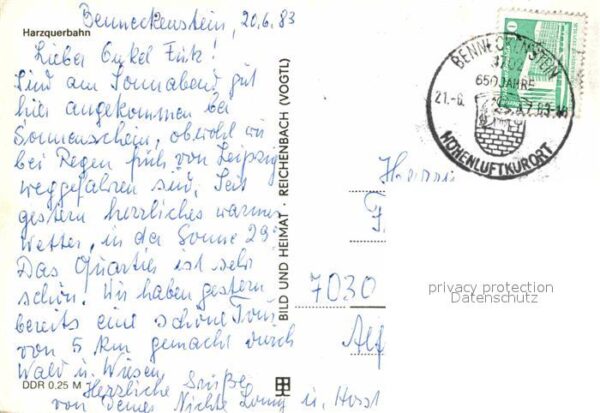 Benneckenstein, 20.6.83
Harzquerbahn
Lieber Onkel Fritz!
Sind am Sonnabend gut
hier angekommen bei
Sonnenschein, obwohl wir
bei Regen früh von Leipzig
weggefahren sind. Seit
gestern herrliches warmes
Wetter, in der Sonne 29°
Das Quartier ist sehr
schön. Wir haben gestern
bereits eine schöne Tour
von 5 km gemacht durch
Wald u. Wiesen.
DDR 0.25 M
Herzliche Grüße
von Deiner Nichte u. Horst
BILD UND HEIMAT · REICHENBACH (VOGTL)
BENNECKENSTEIN
650 JAHRE
21.-6.
HÖHENLUFTKURORT
Herrn
F.
7030
Alf
privacy protection
Datenschutz